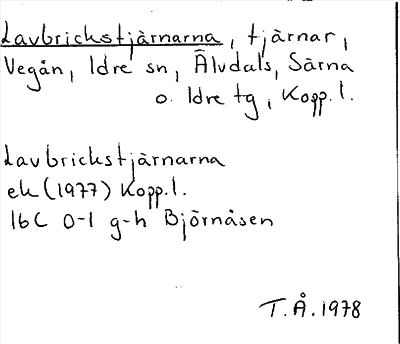 Lavbrickstjärnarna, tjärnar,
Vegån, Idre sn, Älvdals, Särna
o. Idre tg, Kopp.l.
Lavbrickstjärnarna
ek (1977) Kopp.l.
16C 0-1 g-h Björnåsen
T.Å. 1978